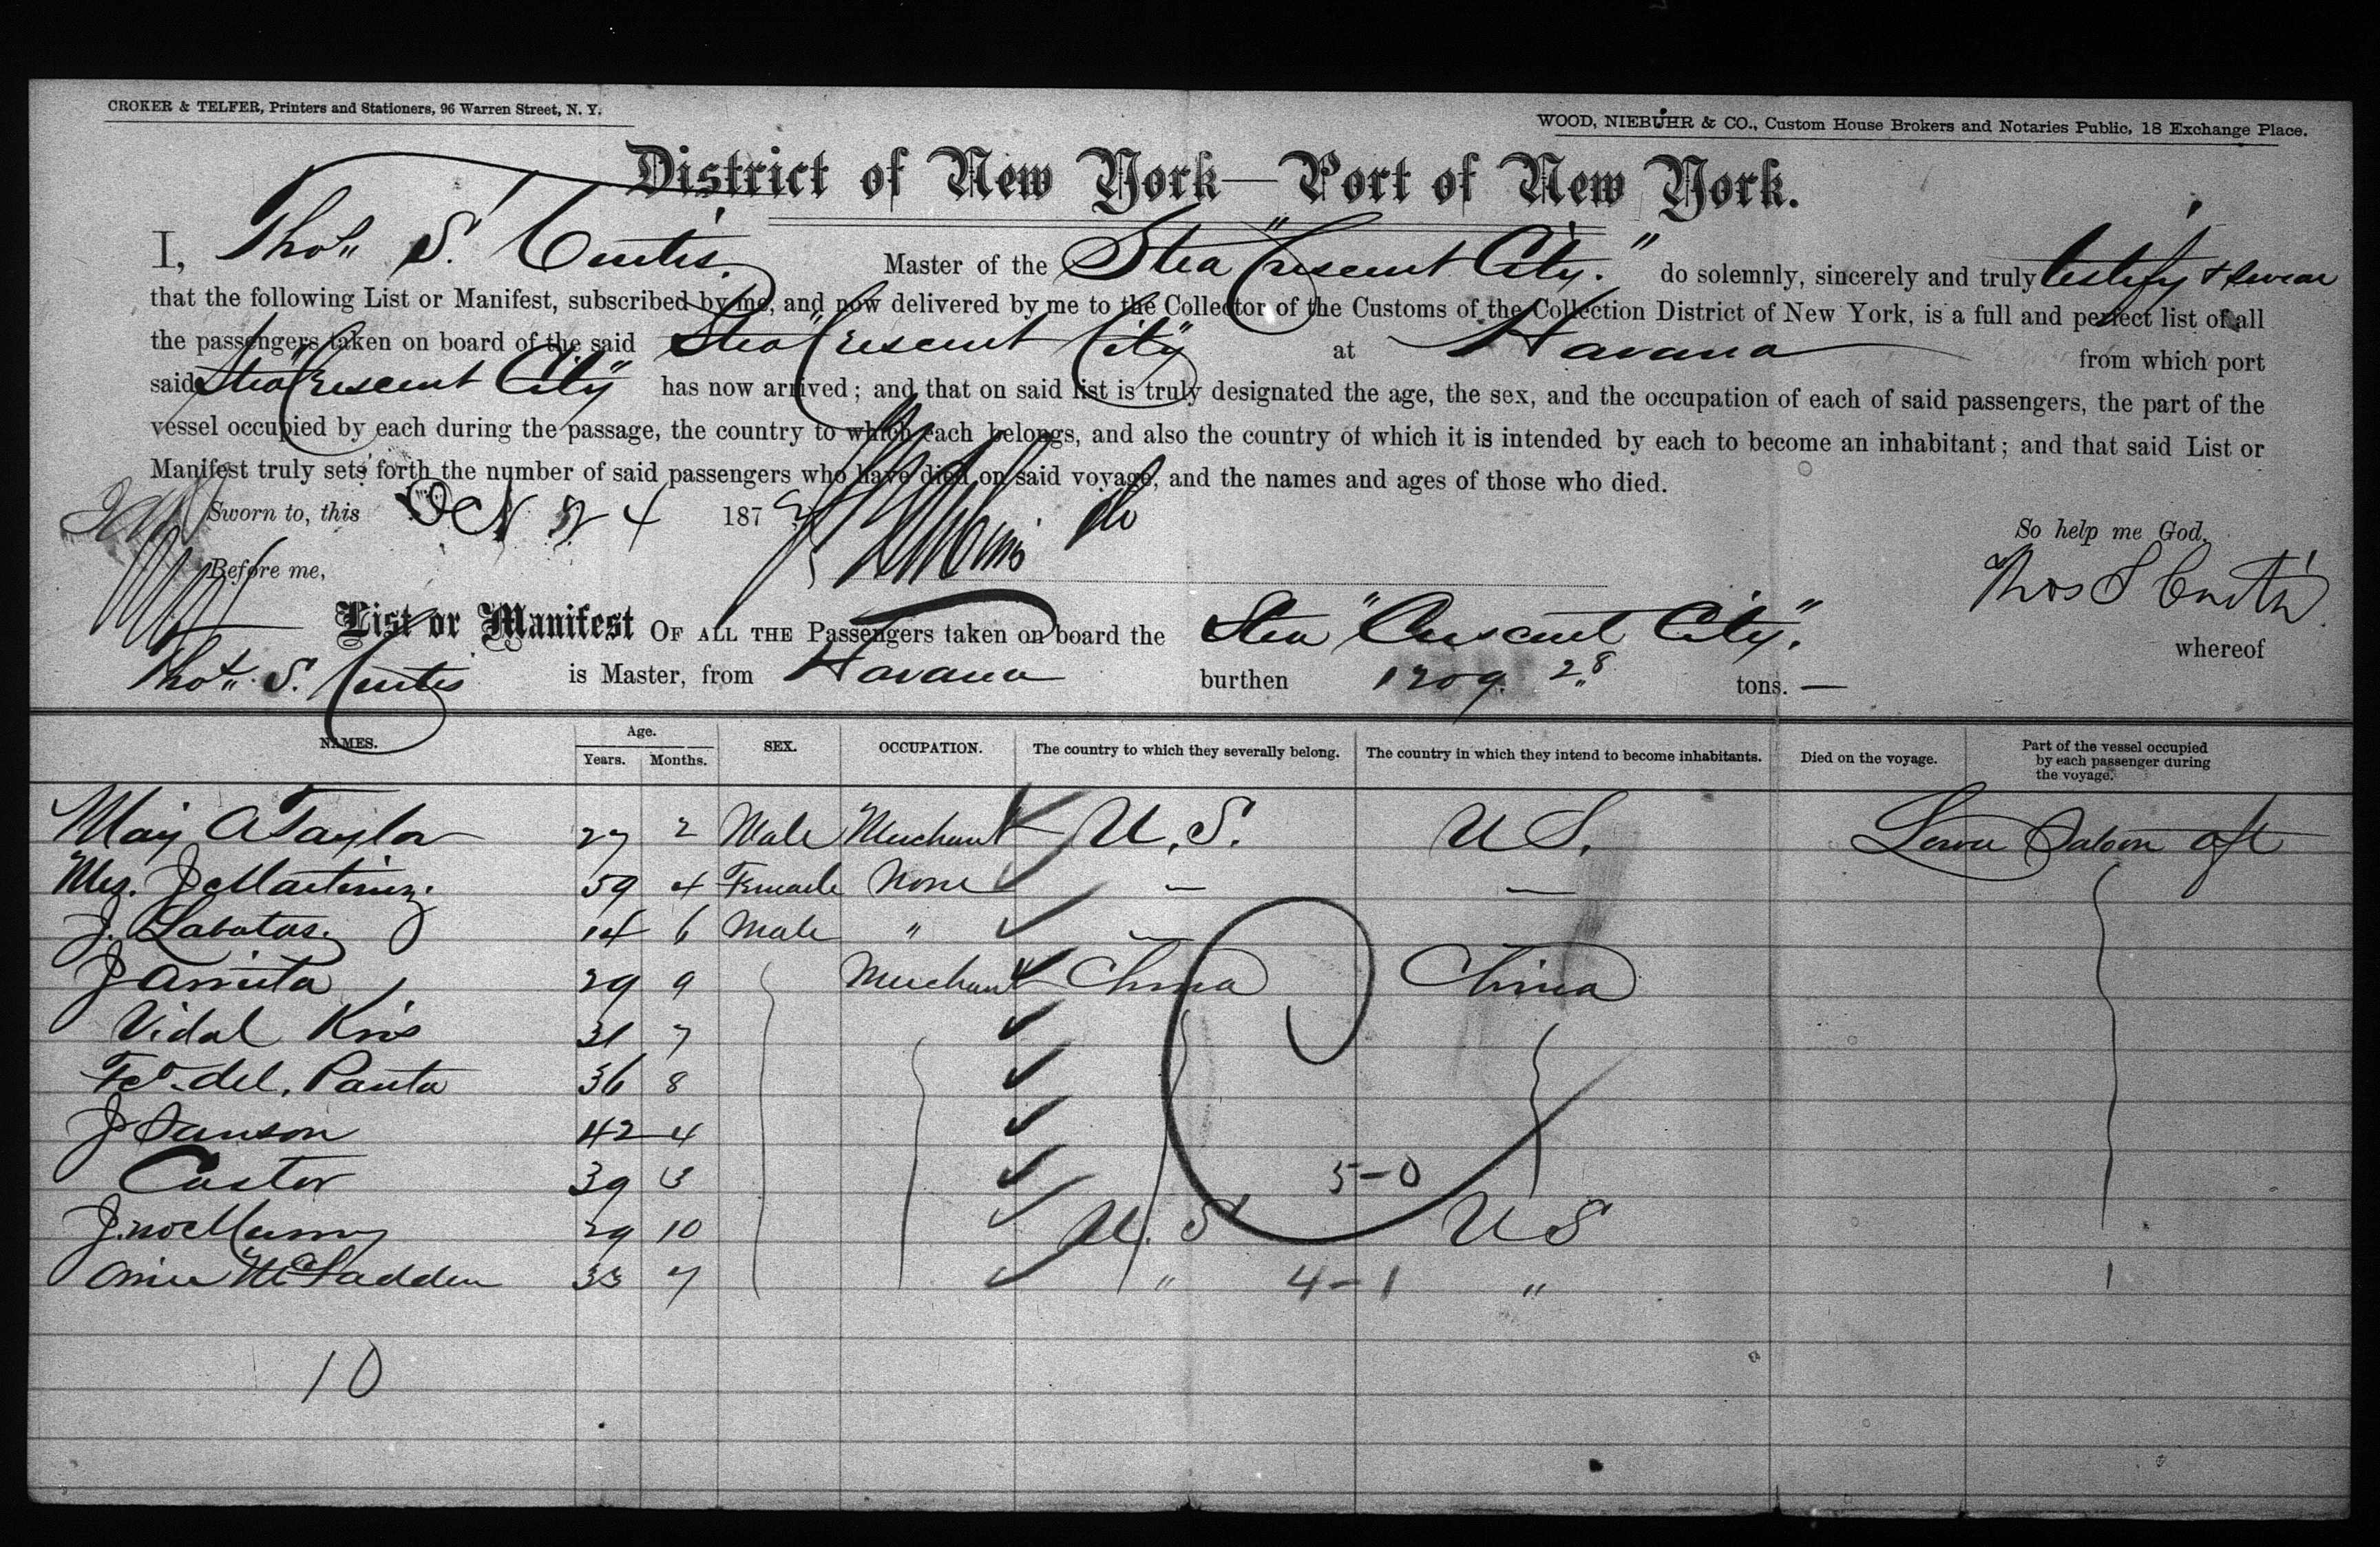 CROKER & TELFER, Printers and Stationers, 96 Warren Street, N. Y.
WOOD, NIEBUHR & CO., Custom House Brokers and Notaries Public, 18 Exchange Place.
District of New York—Port of New York.
I, Thos S. Curtis. Master of the Stea "Crescent City." do solemnly, sincerely and truly testify & swear
that the following List or Manifest, subscribed by me, and now delivered by me to the Collector of the Customs of the Collection District of New York, is a full and perfect list of all
the passengers taken on board of the said Stea "Crescent City" at Havana from which port
said Stea "Crescent City" has now arrived; and that on said list is truly designated the age, the sex, and the occupation of each of said passengers, the part of the
vessel occupied by each during the passage, the country to which each belongs, and also the country of which it is intended by each to become an inhabitant; and that said List or
Manifest truly sets forth the number of said passengers who have died on said voyage, and the names and ages of those who died.
Sworn to, this Oct 24 187
So help me God,
Before me,
Thos S Curtis
List or Manifest OF ALL THE Passengers taken on board the Stea "Crescent City". whereof
Thos. S. Curtis is Master, from Havana burthen 28 tons.
NAMES. Age. Years. Months. SEX. OCCUPATION. The country to which they severally belong. The country in which they intend to become inhabitants. Died on the voyage. Part of the vessel occupied by each passenger during the voyage.
A Taylor 27 2 Male Merchant U.S. U S. Lower Saloon aft
Mrs. J Martinez. 59 4 Female None — —
J. Labatas. 14 6 Male " —
J 29 9 Merchant China China
Vidal 31 7
Fco. del. Panta 36 8
J Sanson 42 4
Castor 39 3
5-0
Jno Murry 29 10 U. S U S
McFadden 33 7 " 4-1 "
10